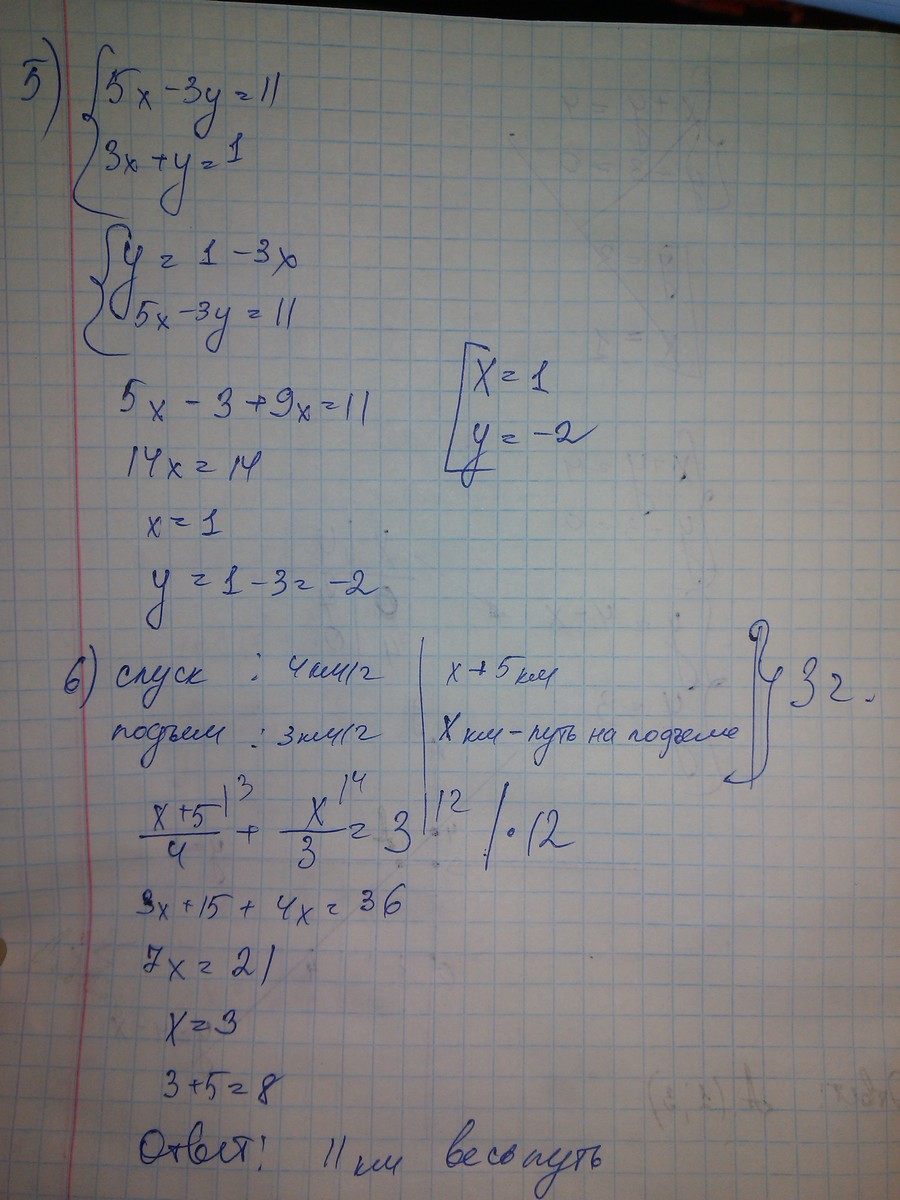 5) 5x - 3y = 11
3x + y = 1
y = 1 - 3x
5x - 3y = 11
5x - 3 + 9x = 11
14x = 14
x = 1
y = 1 - 3 = -2
x = 1
y = -2
6) спуск : 4 км/г | x + 5 км
подъем : 3 км/г | x км - путь на подъеме } 3 г.
(x + 5)/4 |3 + x/3 |4 = 3 |12 / · 12
3x + 15 + 4x = 36
7x = 21
x = 3
3 + 5 = 8
Ответ: 11 км весь путь